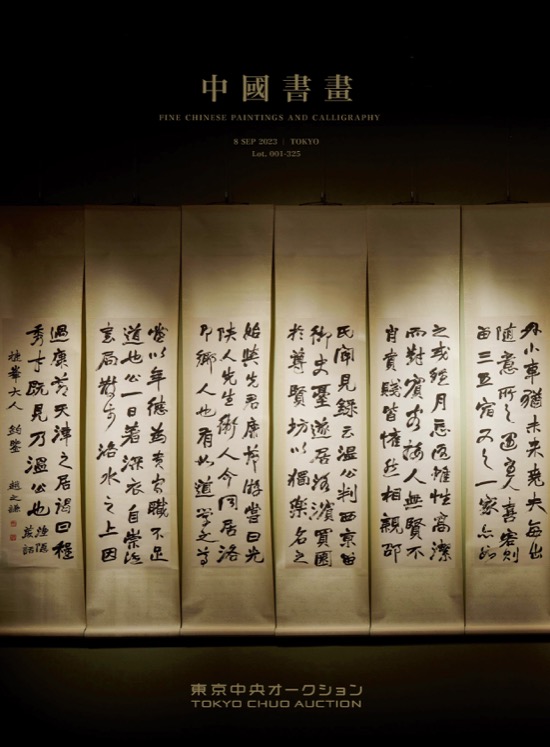 中國書畫
FINE CHINESE PAINTINGS AND CALLIGRAPHY
8 SEP 2023 | TOKYO
Lot. 001-325
外小車猶未來堯夫每出
随意所之遇主人喜客則
留三五宿又之一家亦如
之或經月忘返雖性高潔
而對賓客接人無賢不
肖貴賤皆懽然相親邵
民聞見錄云溫公判西京留
御史臺遂居洛濱買園
於尊賢坊以獨樂名之
始與先君康節游嘗曰光
陝人先生衛人今同居洛
即鄉人也有如道學之尊
當以年德為貴官職不足
道也公一日著深衣自崇
書局散步洛水之上因
過康節天津之居謁曰程
秀才既見乃溫公也 漁隱叢話
穗峯大人 鈞鑒 趙之謙
東京中央オークション
TOKYO CHUO AUCTION